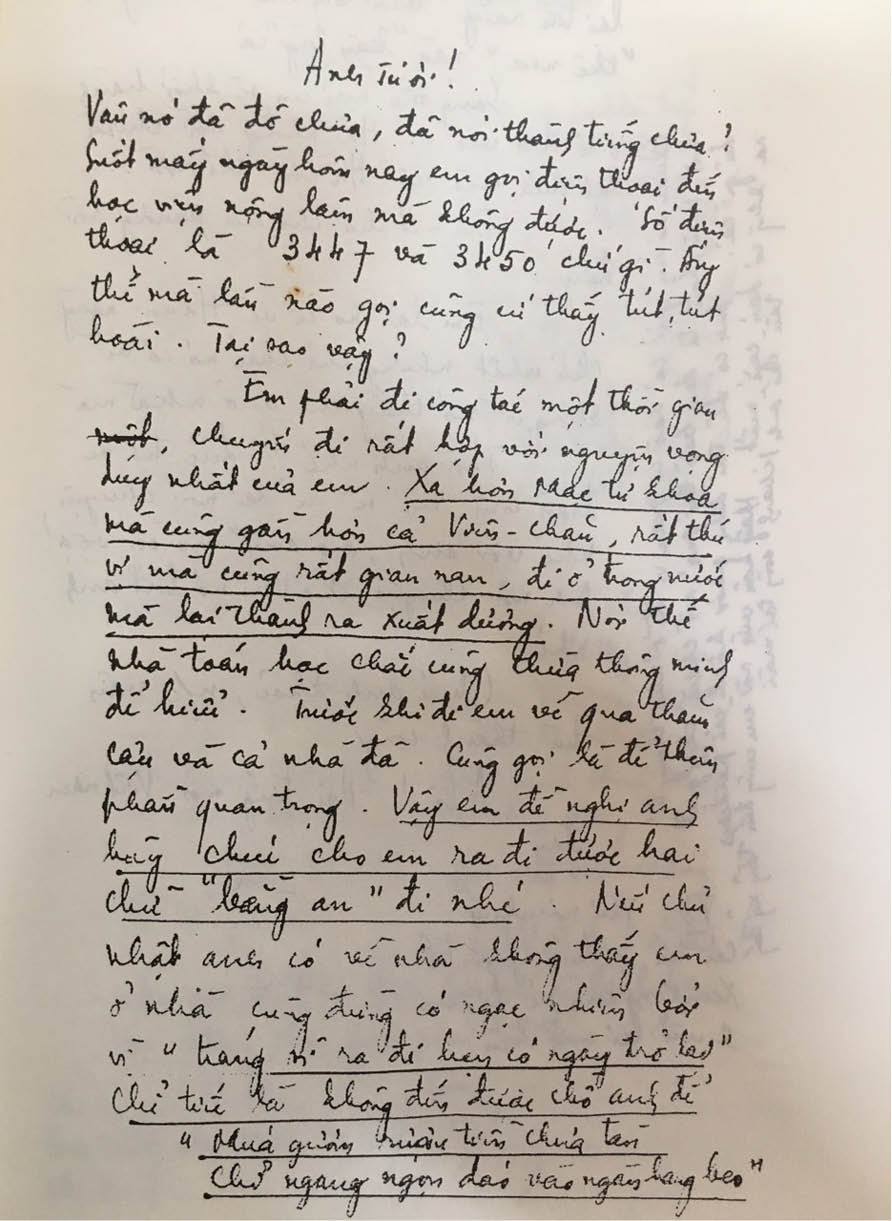 Anh Tưởi!
Vẫn nó đã đỡ chưa, đã nói thành tiếng chưa?
Suốt mấy ngày hôm nay em gọi điện thoại đến
học viện nông lâm mà không được. Số điện
thoại là 3447 và 3450 chứ gì. Ấy
thế mà lần nào gọi cũng cứ thấy tút, tút
hoài. Tại sao vậy?
Em phải đi công tác một thời gian
một, chuyến đi rất hợp với nguyện vọng
duy nhất của em. Xa hơn Mạc tư khoa
mà cũng gần hơn cả Viên-chăn, rất thú
vị mà cũng rất gian nan, đi ở trong nước
mà lại thành ra xuất dương. Nói thế
nhà toán học chắc cũng thừa thông minh
để hiểu. Trước khi đi em về qua thăm
cậu và cả nhà đã. Cũng gọi là để thêm
phần quan trọng. Vậy em đề nghị anh
hãy chúc cho em ra đi được hai
chữ "bằng an" đi nhé. Nếu chủ
nhật anh có về nhà không thấy em
ở nhà cũng đừng có ngạc nhiên bởi
vì "tráng sĩ ra đi hẹn có ngày trở lại"
Chỉ tiếc là không đến được chỗ anh để
"Múa gươm rượu tiễn chưa tàn
Chỉ ngang ngọn dáo vào ngàn hang beo"